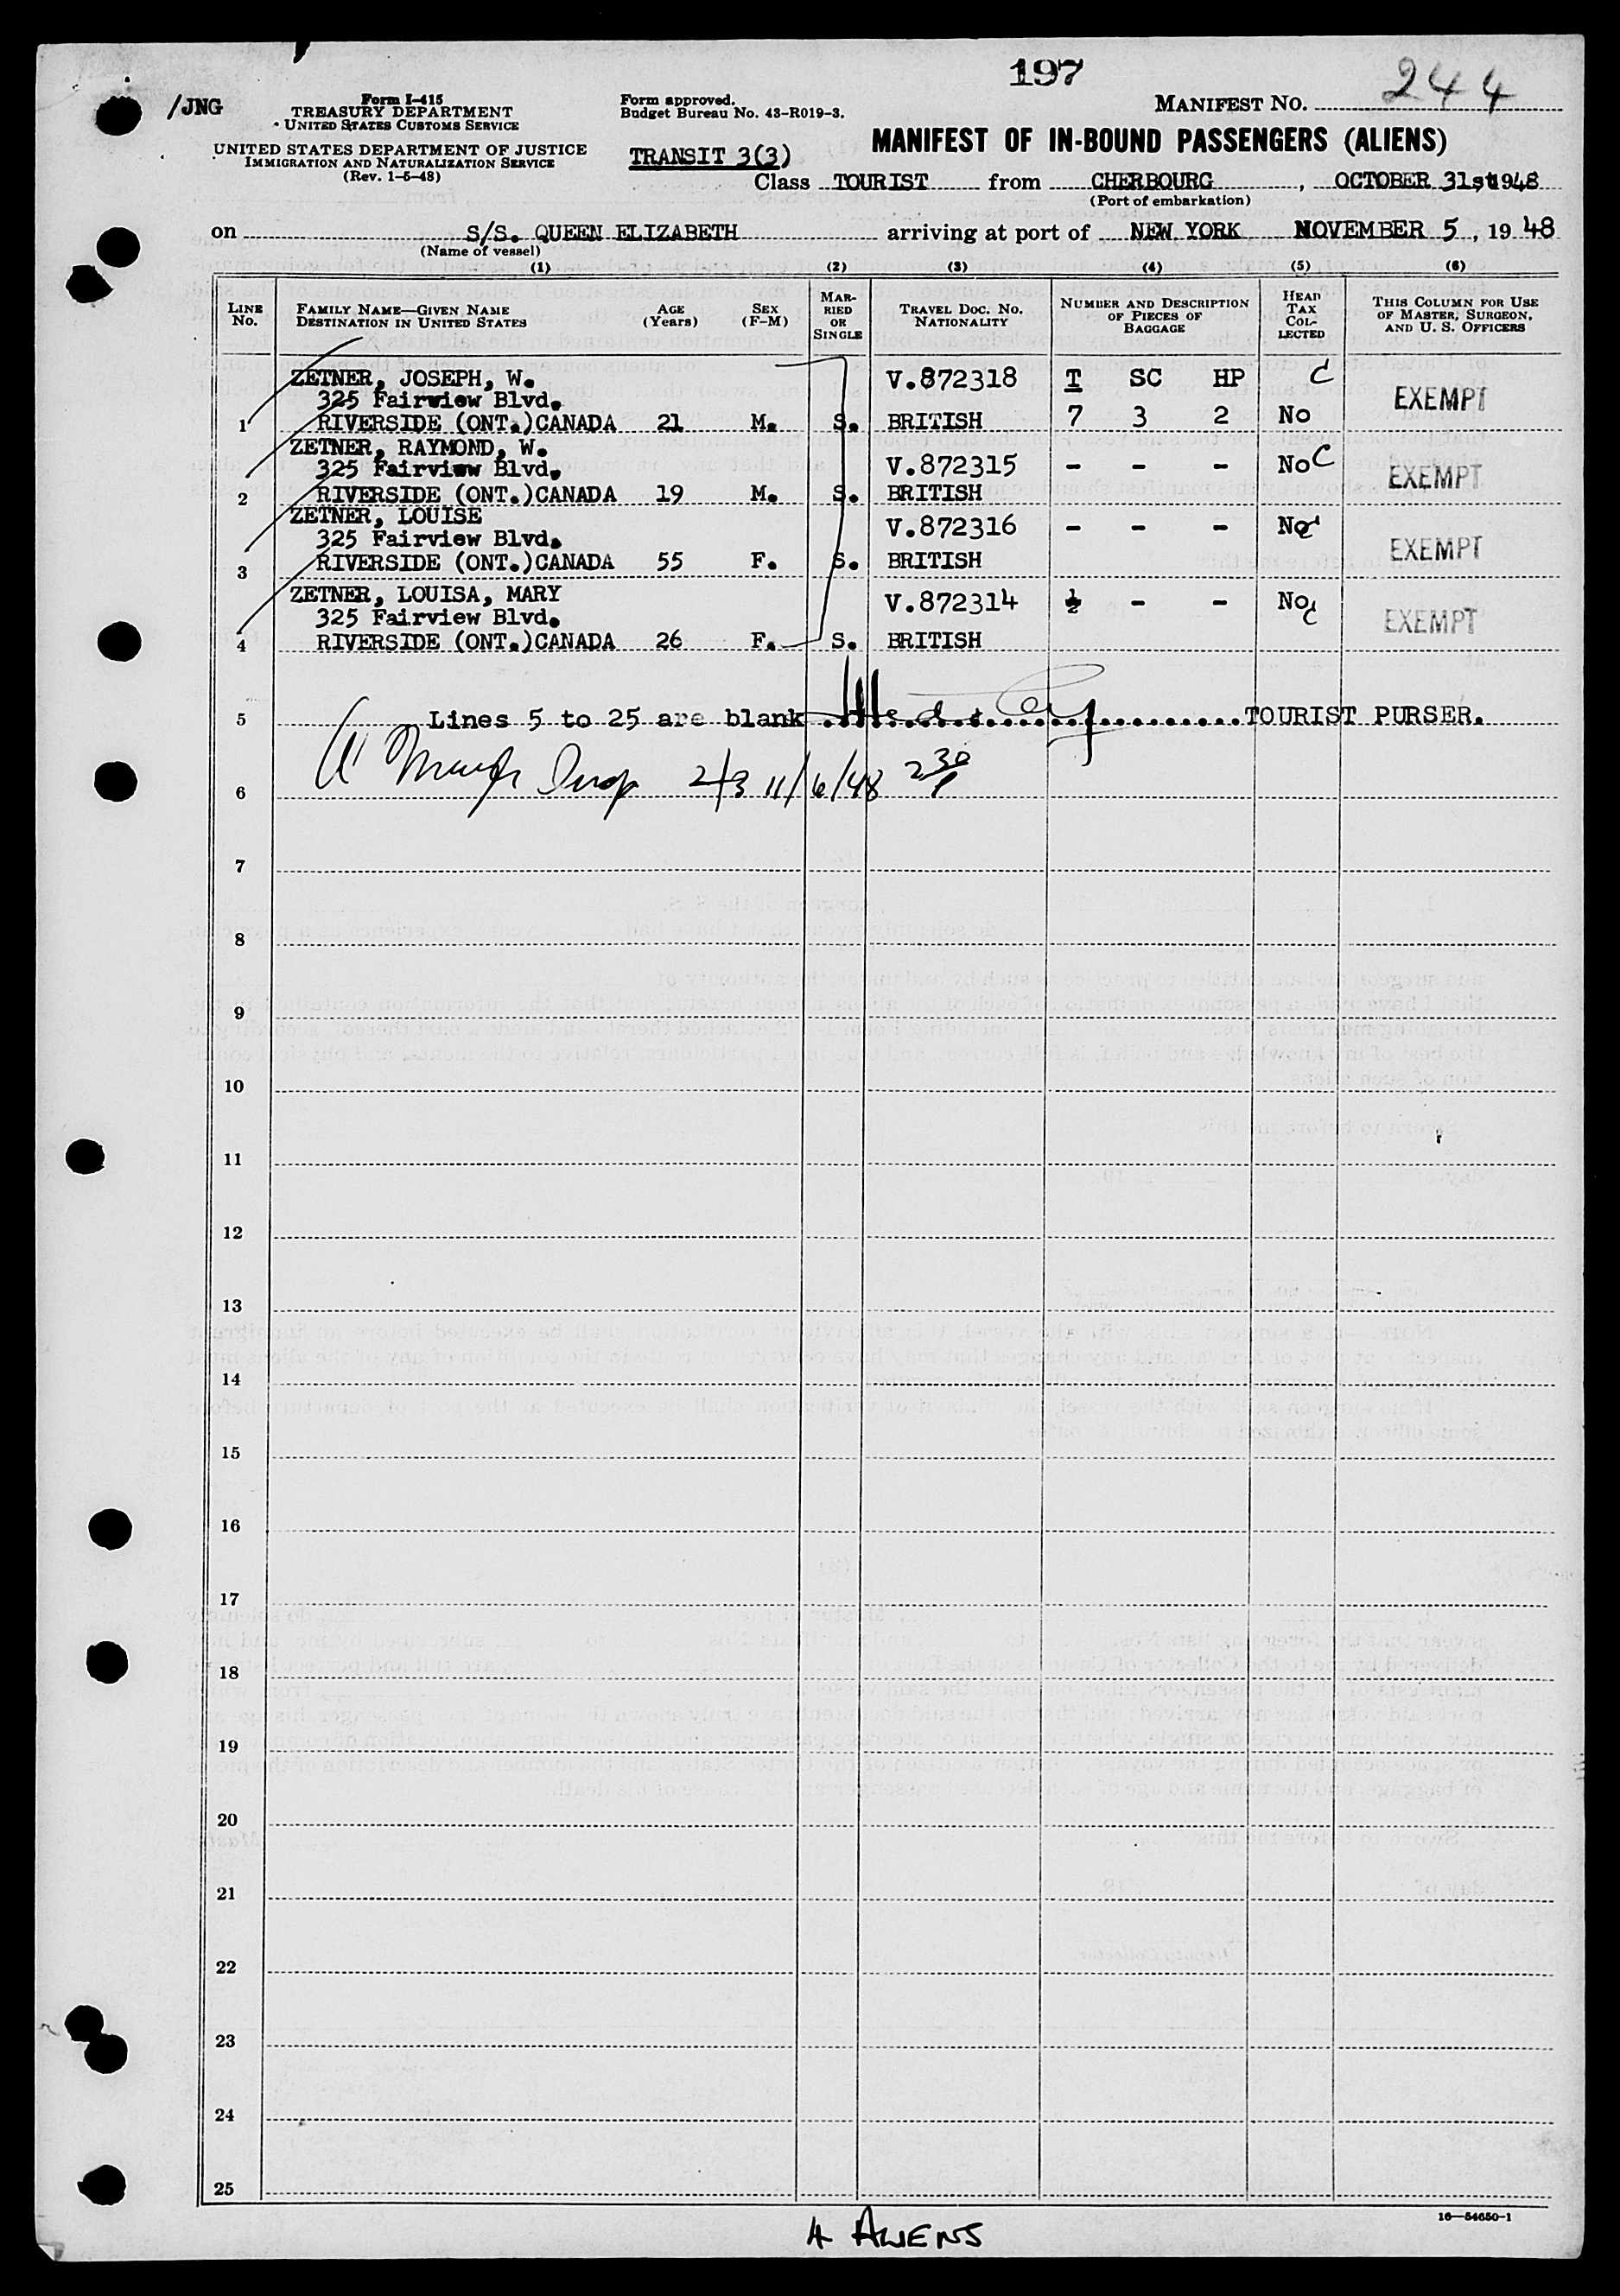 197
/JNG
Form I-415
TREASURY DEPARTMENT
UNITED STATES CUSTOMS SERVICE
UNITED STATES DEPARTMENT OF JUSTICE
IMMIGRATION AND NATURALIZATION SERVICE
(Rev. 1-5-48)
Form approved.
Budget Bureau No. 43-R019-3.
MANIFEST NO. 244
MANIFEST OF IN-BOUND PASSENGERS (ALIENS)
TRANSIT 3(3)
Class TOURIST from CHERBOURG, OCTOBER 31st 1948
(Port of embarkation)
on S/S. QUEEN ELIZABETH arriving at port of NEW YORK NOVEMBER 5, 19 48
(Name of vessel)
(1) (2) (3) (4) (5) (6)
LINE No. FAMILY NAME—GIVEN NAME DESTINATION IN UNITED STATES AGE (Years) SEX (F-M) MARRIED OR SINGLE TRAVEL DOC. NO. NATIONALITY NUMBER AND DESCRIPTION OF PIECES OF BAGGAGE HEAD TAX COLLECTED THIS COLUMN FOR USE OF MASTER, SURGEON, AND U. S. OFFICERS
ZETNER, JOSEPH, W. V.872318 T SC HP C
325 Fairview Blvd. EXEMPT
1 RIVERSIDE (ONT.)CANADA 21 M. S. BRITISH 7 3 2 No
ZETNER, RAYMOND, W.
325 Fairview Blvd. V.872315 - - - No C EXEMPT
2 RIVERSIDE (ONT.)CANADA 19 M. S. BRITISH
ZETNER, LOUISE V.872316 - - - No C
325 Fairview Blvd. EXEMPT
3 RIVERSIDE (ONT.)CANADA 55 F. S. BRITISH
ZETNER, LOUISA, MARY V.872314 ½ - - No C
325 Fairview Blvd. EXEMPT
4 RIVERSIDE (ONT.)CANADA 26 F. S. BRITISH
5 Lines 5 to 25 are blank ..............................TOURIST PURSER.
6 Insp 2/3 11/6/48 2 30
7
8
9
10
11
12
13
14
15
16
17
18
19
20
21
22
23
24
25
16—54650-1
4 ALIENS